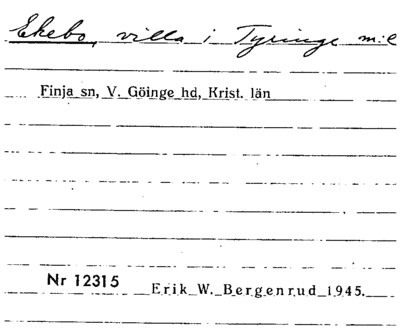 Ekebo, villa i Tyringe m:e
Finja sn, V. Göinge hd, Krist. län
Nr 12315 Erik W. Bergenrud 1945.